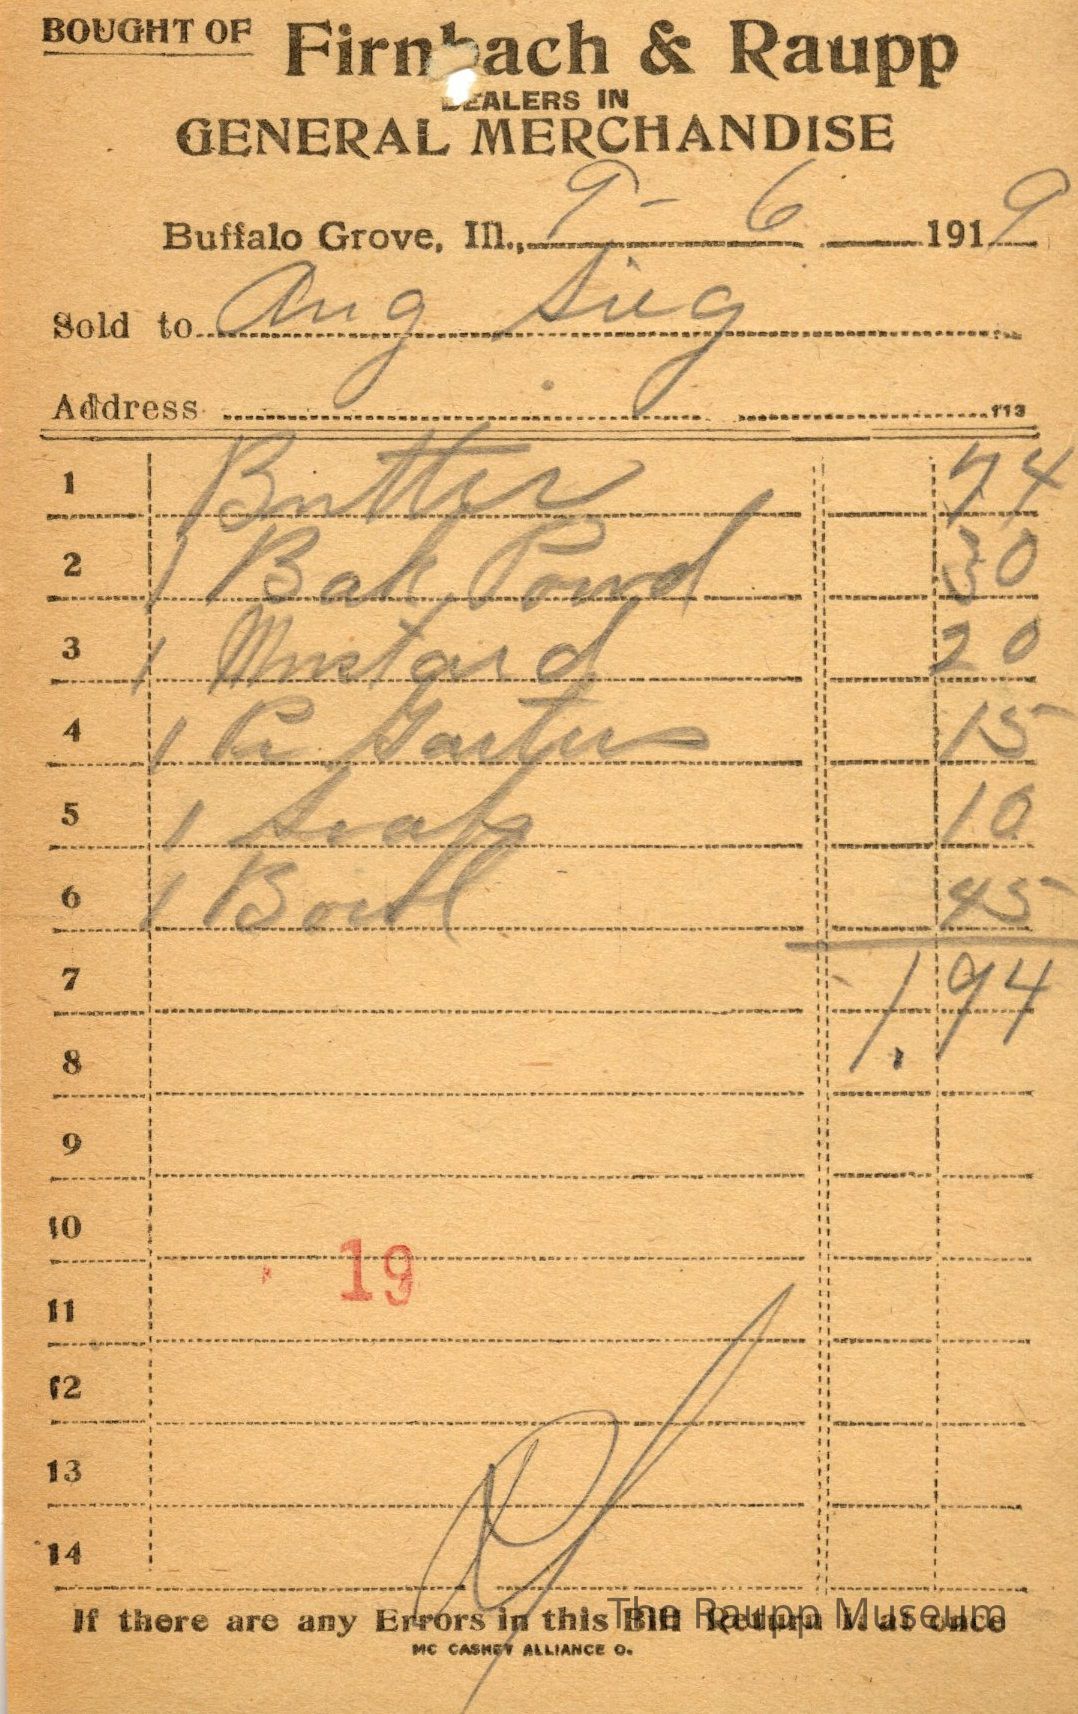 BOUGHT OF Firnbach & Raupp
DEALERS IN
GENERAL MERCHANDISE
Buffalo Grove, Ill., 9-6 1919
Sold to Aug Sieg
Address 113
1 Butter 74
2 1 Bak Powd 30
3 1 Mustard 20
4 1 Pr Garters 15
5 1 Soap 10
6 1 Bowl 45
7 1.94
8
9
10
19
11
12
13
14
If there are any Errors in this Bill Return it at once
The Raupp Museum
MC CASKEY ALLIANCE O.